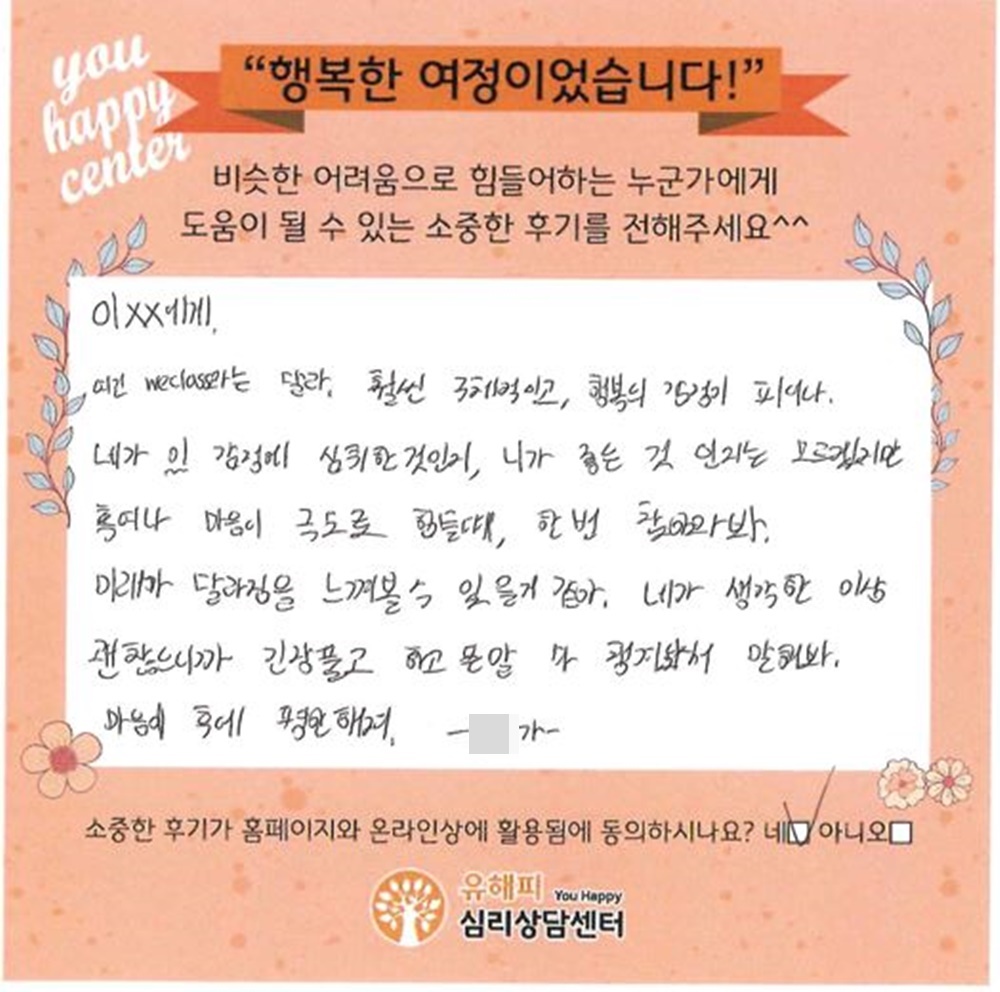 you
happy
center
“행복한 여정이었습니다!”
비슷한 어려움으로 힘들어하는 누군가에게
도움이 될 수 있는 소중한 후기를 전해주세요^^
이XX에게,
여긴 weclass와는 달라. 훨씬 구체적이고, 행복의 감정이 피어나.
네가 감정에 심취한것인지, 니가 좋은 것 인지는 모르겠지만
혹여나 마음이 극도로 힘들때, 한 번 찾아와봐.
미래가 달라짐을 느껴볼 수 있을거 같아. 네가 생각한 이상
괜찮으니까 긴장풀고 하고 말해봐.
마음이 후에 평안해져. - 가-
소중한 후기가 홈페이지와 온라인상에 활용됨에 동의하시나요? 네 아니오
유해피 You Happy
심리상담센터